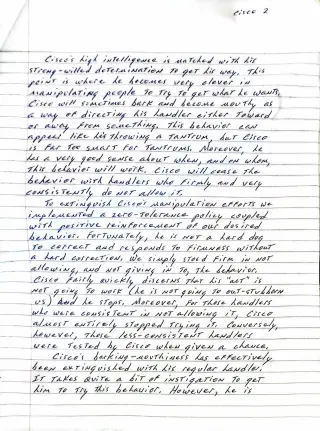 Cisco 2
Cisco's high intelligence is matched with his
strong-willed determination to get his way. This
point is where he becomes very clever in
manipulating people to try to get what he wants.
Cisco will simetimes bark and become mouthy as
a way of directing his handler either toward
or away from something. This behavior can
appeal like his throwing a tantrum, but Cisco
is far too smart for tantrums. Moreover, he
has a very good sense about when, and on whom,
this behavior will work. Cisco will cease the
behavior with handlers who firmly and very
consistently do not allow it.
To extinguish Cisco's manipulation efforts we
implemented a zero-tolerance policy coupled
with positive reinforcement of our desired
behavior. Fortunately, he is not a hard dog
to correct and responds to firmness without
a hard correction. We simply stood firm in not
allowing, and not giving in to, the behavior.
Cisco fairly quickly, discerns that his "act" is
not going to work (he is not going to out-stubborn
us) and he stops. Moreover, for those handlers
who were consistent in not allowing it, Cisco
almost entirely stopped trying it. Conversely,
however, those less-consistent handlers
were tested by Cisco when given a chance.
Cisco's barking-mouthiness has effectively
been extinguished with his regular handler.
It takes quite a bit of instigation to get
him to try this behavior. However, he is